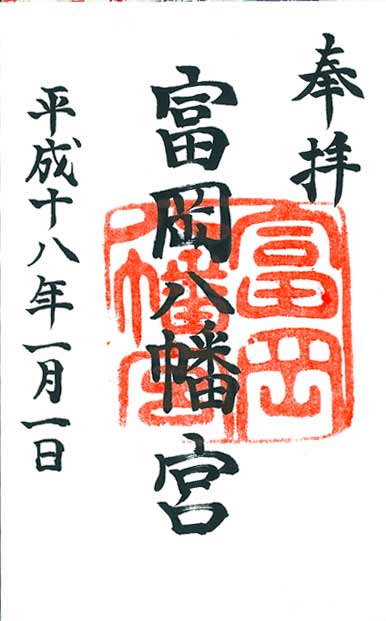 奉拝
富岡八幡宮
平成十八年一月一日
富岡
八幡宮